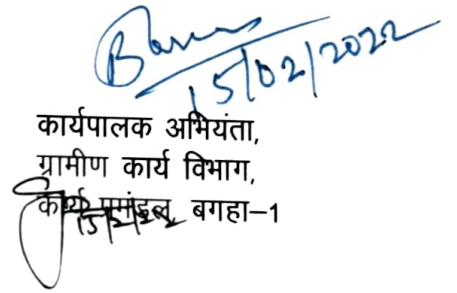 15/02/2022
कार्यपालक अभियंता,
ग्रामीण कार्य विभाग,
कार्य प्रमंडल, बगहा-1
15/2/22